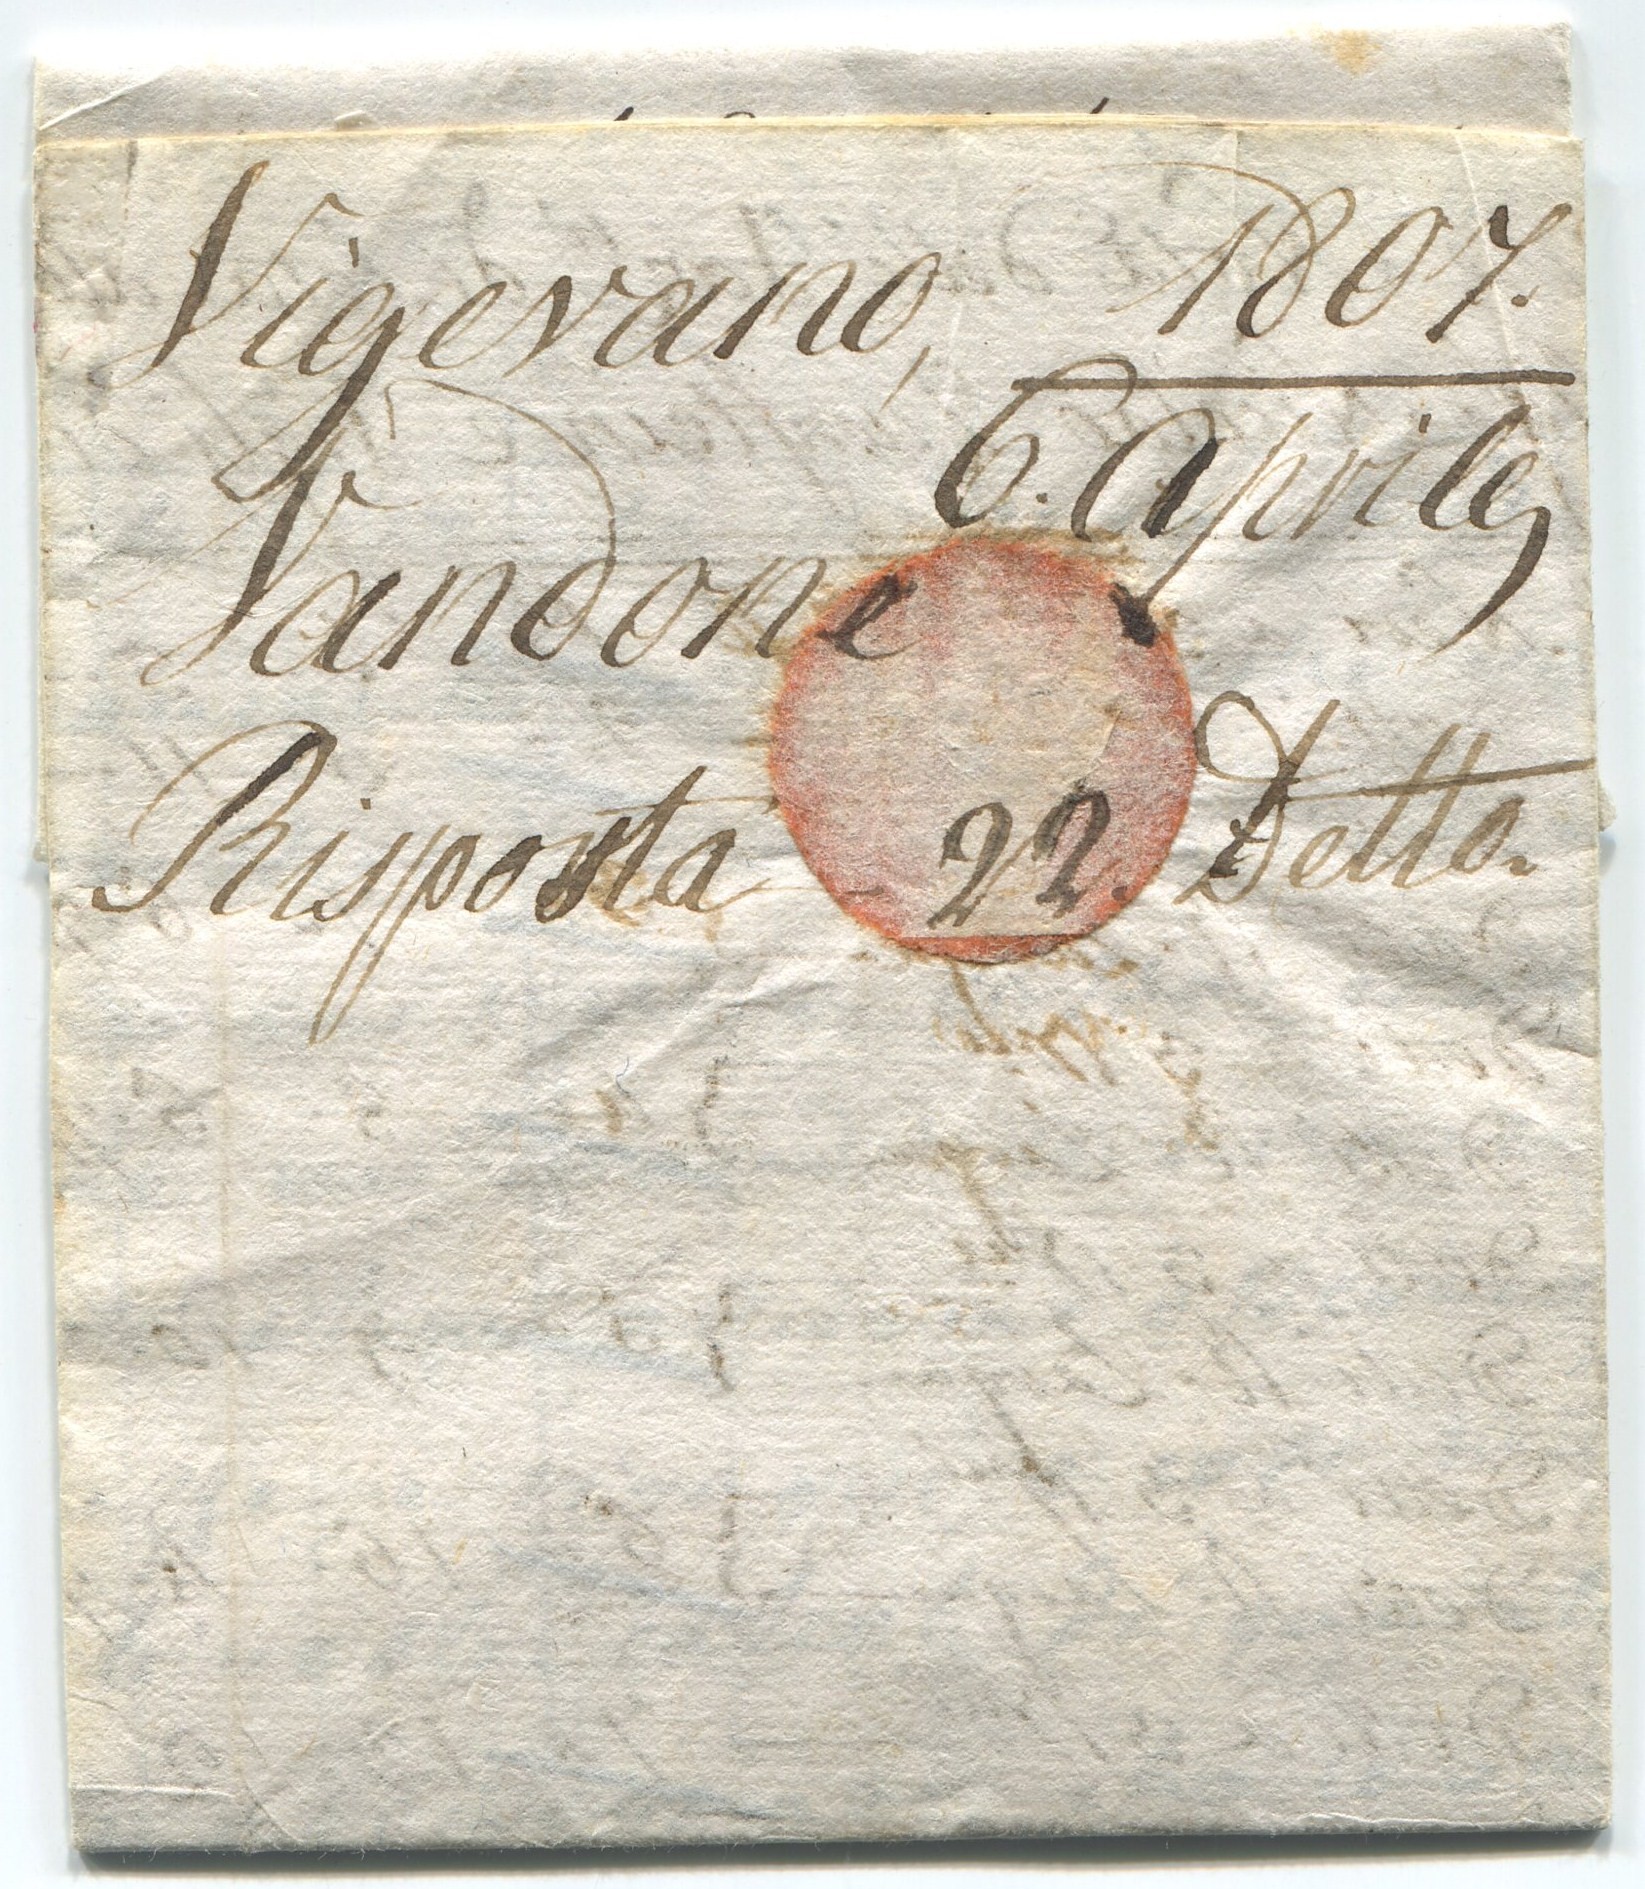 Vigevano, 1807.
6. Aprile,
Vandone
Risposta 22. Detto.